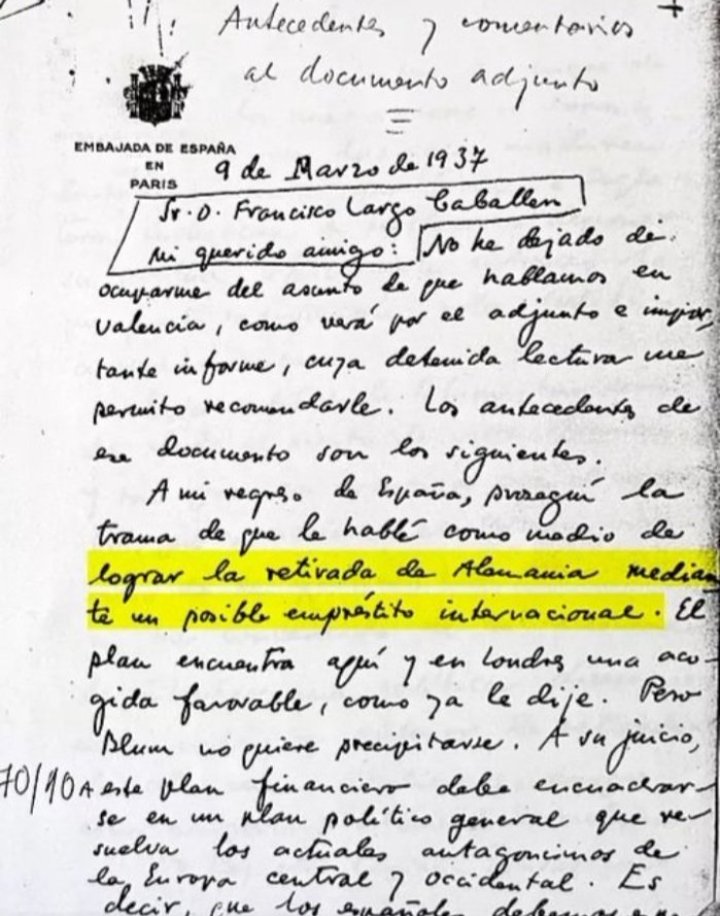 Antecedentes y comentarios
al documento adjunto
EMBAJADA DE ESPAÑA
EN
PARIS
9 de Marzo de 1937
Sr. D. Francisco Largo Caballero
Mi querido amigo: No he dejado de
ocuparme del asunto de que hablamos en
Valencia, como verá por el adjunto e impor-
tante informe, cuya detenida lectura me
permito recomendarle. Los antecedentes de
ese documento son los siguientes.
A mi regreso de España, proseguí la
trama de que le hablé como medio de
lograr la retirada de Alemania median-
te un posible empréstito internacional. El
plan encuentra aquí y en Londres una aco-
gida favorable, como ya le dije. Pero
Blum no quiere precipitarse. A su juicio,
70/10 A este plan financiero debe encuadrar-
se en un plan político general que re-
suelva los actuales antagonismos de
la Europa central y occidental. Es
decir, que los españoles debemos